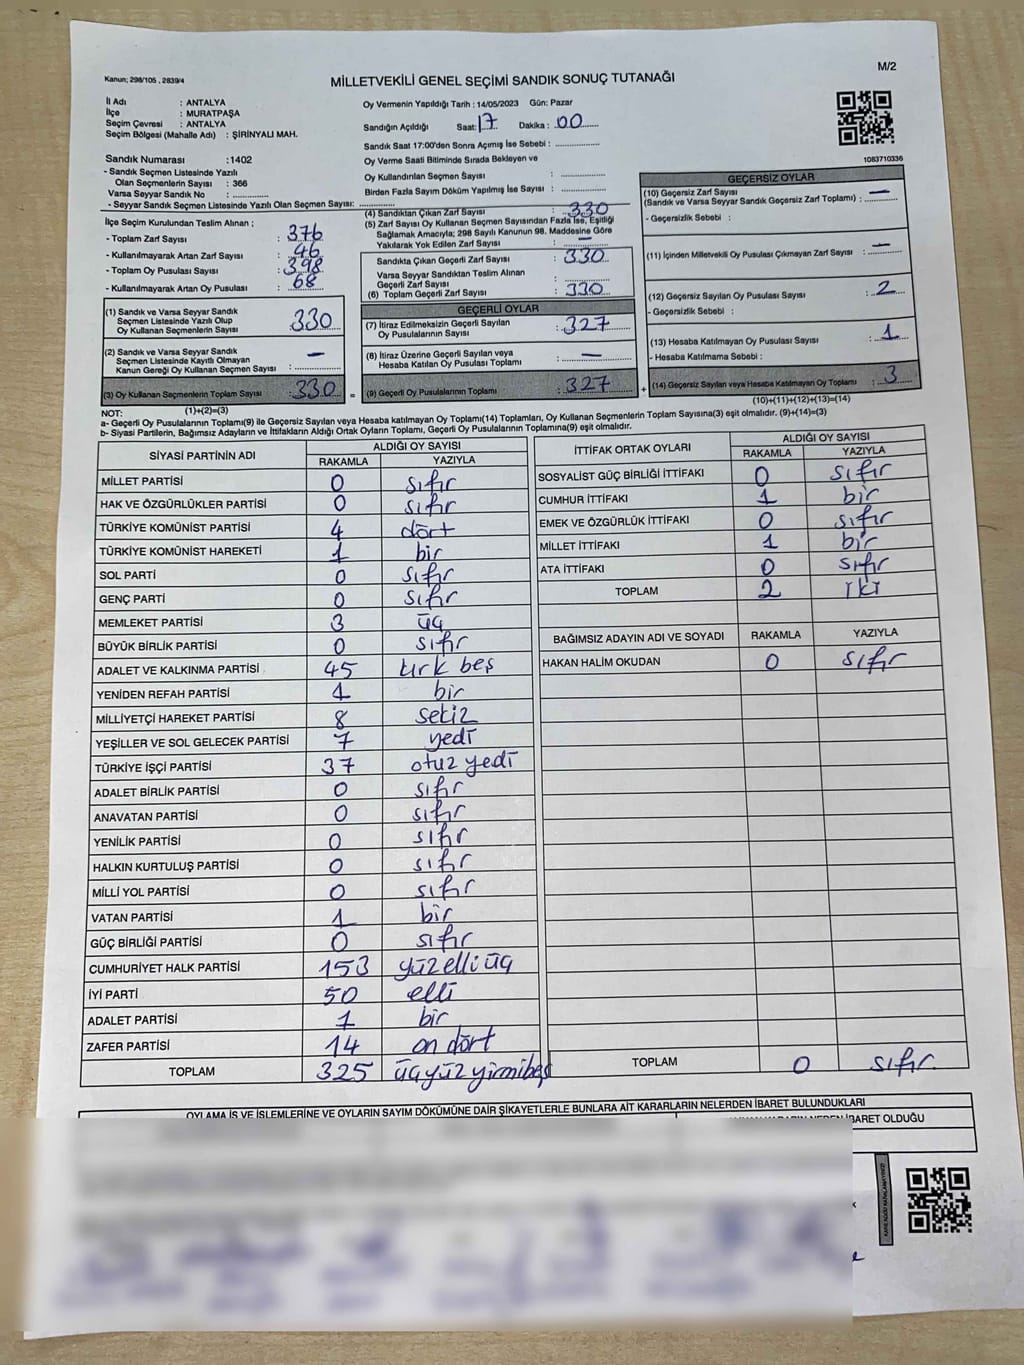 Kanun; 298/105 , 2839/4
MİLLETVEKİLİ GENEL SEÇİMİ SANDIK SONUÇ TUTANAĞI
M/2
İl Adı : ANTALYA
İlçe : MURATPAŞA
Seçim Çevresi : ANTALYA
Seçim Bölgesi (Mahalle Adı) : ŞİRİNYALI MAH.
Oy Vermenin Yapıldığı Tarih : 14/05/2023 Gün: Pazar
Sandığın Açıldığı Saat: 17 Dakika : 00
Sandık Saat 17:00'den Sonra Açımış İse Sebebi :
Oy Verme Saati Bitiminde Sırada Bekleyen ve
Oy Kullandırılan Seçmen Sayısı :
Birden Fazla Sayım Döküm Yapılmış İse Sayısı :
1083710336
Sandık Numarası :1402
- Sandık Seçmen Listesinde Yazılı
Olan Seçmenlerin Sayısı : 366
Varsa Seyyar Sandık No :
- Seyyar Sandık Seçmen Listesinde Yazılı Olan Seçmen Sayısı:
İlçe Seçim Kurulundan Teslim Alınan ;
- Toplam Zarf Sayısı : 376
- Kullanılmayarak Artan Zarf Sayısı : 46
- Toplam Oy Pusulası Sayısı : 398
- Kullanılmayarak Artan Oy Pusulası : 68
(1) Sandık ve Varsa Seyyar Sandık
Seçmen Listesinde Yazılı Olup
Oy Kullanan Seçmenlerin Sayısı 330
(2) Sandık ve Varsa Seyyar Sandık
Seçmen Listesinde Kayıtlı Olmayan
Kanun Gereği Oy Kullanan Seçmen Sayısı : —
(3) Oy Kullanan Seçmenlerin Toplam Sayısı : 330
(1)+(2)=(3)
(4) Sandıktan Çıkan Zarf Sayısı : 330
(5) Zarf Sayısı Oy Kullanan Seçmen Sayısından Fazla İse, Eşitliği
Sağlamak Amacıyla; 298 Sayılı Kanunun 98. Maddesine Göre
Yakılarak Yok Edilen Zarf Sayısı : —
Sandıkta Çıkan Geçerli Zarf Sayısı : 330
Varsa Seyyar Sandıktan Teslim Alınan
Geçerli Zarf Sayısı :
(6) Toplam Geçerli Zarf Sayısı : 330
GEÇERLİ OYLAR
(7) İtiraz Edilmeksizin Geçerli Sayılan
Oy Pusulalarının Sayısı : 327
(8) İtiraz Üzerine Geçerli Sayılan veya
Hesaba Katılan Oy Pusulası Toplamı : —
= (9) Geçerli Oy Pusulalarının Toplamı : 327
GEÇERSİZ OYLAR
(10) Geçersiz Zarf Sayısı —
(Sandık ve Varsa Seyyar Sandık Geçersiz Zarf Toplamı) :
- Geçersizlik Sebebi :
(11) İçinden Milletvekili Oy Pusulası Çıkmayan Zarf Sayısı : —
(12) Geçersiz Sayılan Oy Pusulası Sayısı : 2
- Geçersizlik Sebebi :
(13) Hesaba Katılmayan Oy Pusulası Sayısı : 1
- Hesaba Katılmama Sebebi :
+ (14) Geçersiz Sayılan veya Hesaba Katılmayan Oy Toplamı : 3
(10)+(11)+(12)+(13)=(14)
NOT:
a- Geçerli Oy Pusulalarının Toplamı(9) ile Geçersiz Sayılan veya Hesaba katılmayan Oy Toplamı(14) Toplamları, Oy Kullanan Seçmenlerin Toplam Sayısına(3) eşit olmalıdır. (9)+(14)=(3)
b- Siyasi Partilerin, Bağımsız Adayların ve İttifakların Aldığı Ortak Oyların Toplamı, Geçerli Oy Pusulalarının Toplamına(9) eşit olmalıdır.
SİYASİ PARTİNİN ADI ALDIĞI OY SAYISI
RAKAMLA YAZIYLA
MİLLET PARTİSİ 0 sıfır
HAK VE ÖZGÜRLÜKLER PARTİSİ 0 sıfır
TÜRKİYE KOMÜNİST PARTİSİ 4 dört
TÜRKİYE KOMÜNİST HAREKETİ 1 bir
SOL PARTİ 0 sıfır
GENÇ PARTİ 0 sıfır
MEMLEKET PARTİSİ 3 üç
BÜYÜK BİRLİK PARTİSİ 0 sıfır
ADALET VE KALKINMA PARTİSİ 45 kırk beş
YENİDEN REFAH PARTİSİ 1 bir
MİLLİYETÇİ HAREKET PARTİSİ 8 sekiz
YEŞİLLER VE SOL GELECEK PARTİSİ 7 yedi
TÜRKİYE İŞÇİ PARTİSİ 37 otuz yedi
ADALET BİRLİK PARTİSİ 0 sıfır
ANAVATAN PARTİSİ 0 sıfır
YENİLİK PARTİSİ 0 sıfır
HALKIN KURTULUŞ PARTİSİ 0 sıfır
MİLLİ YOL PARTİSİ 0 sıfır
VATAN PARTİSİ 1 bir
GÜÇ BİRLİĞİ PARTİSİ 0 sıfır
CUMHURİYET HALK PARTİSİ 153 yüz elli üç
İYİ PARTİ 50 elli
ADALET PARTİSİ 1 bir
ZAFER PARTİSİ 14 on dört
TOPLAM 325 üçyüz yirmibeş
İTTİFAK ORTAK OYLARI ALDIĞI OY SAYISI
RAKAMLA YAZIYLA
SOSYALİST GÜÇ BİRLİĞİ İTTİFAKI 0 sıfır
CUMHUR İTTİFAKI 1 bir
EMEK VE ÖZGÜRLÜK İTTİFAKI 0 sıfır
MİLLET İTTİFAKI 1 bir
ATA İTTİFAKI 0 sıfır
TOPLAM 2 iki
BAĞIMSIZ ADAYIN ADI VE SOYADI RAKAMLA YAZIYLA
HAKAN HALİM OKUDAN 0 sıfır
TOPLAM 0 sıfır
OYLAMA İŞ VE İŞLEMLERİNE VE OYLARIN SAYIM DÖKÜMÜNE DAİR ŞİKAYETLERLE BUNLARA AİT KARARLARIN NELERDEN İBARET BULUNDUKLARI
İBARET OLDUĞU